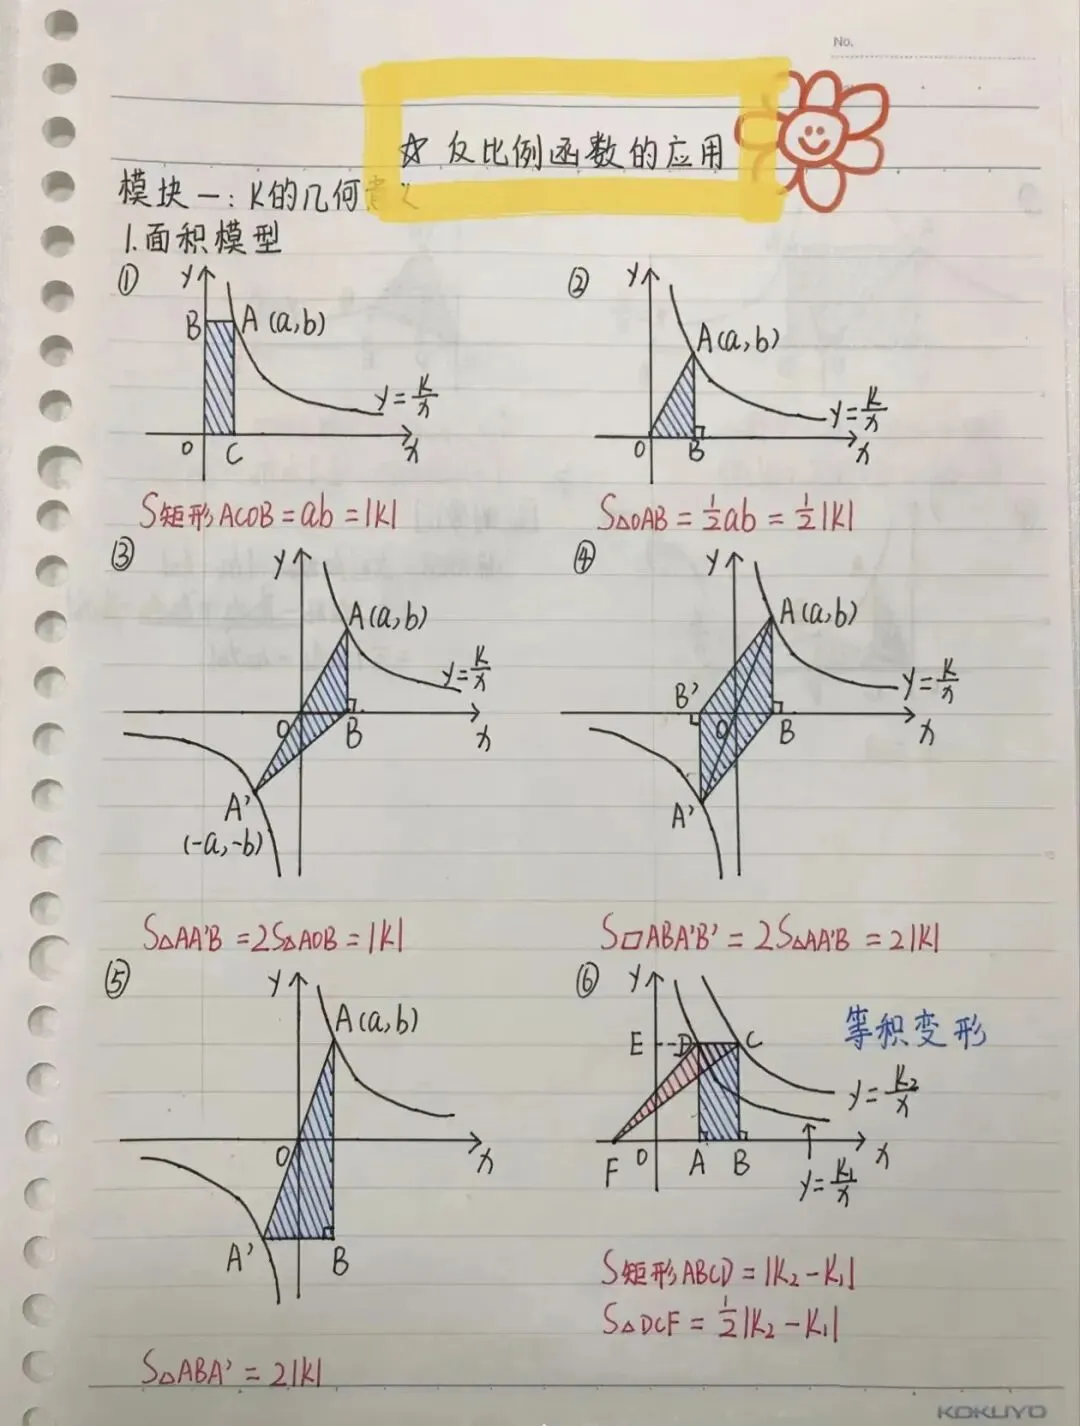 No.
☆ 反比例函数的应用
模块一: K的几何
1.面积模型
①
y
B
A (a,b)
y=k/x
O
C
x
S矩形ACOB = ab = |K|
②
y
A(a,b)
y=k/x
O
B
x
S△OAB = 1/2ab = 1/2|K|
③
y
A(a,b)
y=k/x
O
B
x
A'
(-a,-b)
S△AA'B = 2S△AOB = |K|
④
y
A(a,b)
B'
y=k/x
O
B
x
A'
S▱ABA'B' = 2S△AA'B = 2|K|
⑤
y
A(a,b)
O
x
A'
B
S△ABA' = 2|K|
⑥
y
等积变形
E
D
C
y=k₂/x
F
O
A
B
x
y=k₁/x
S矩形ABCD = |K₂-K₁|
S△DCF = 1/2|K₂-K₁|
KOKUYO